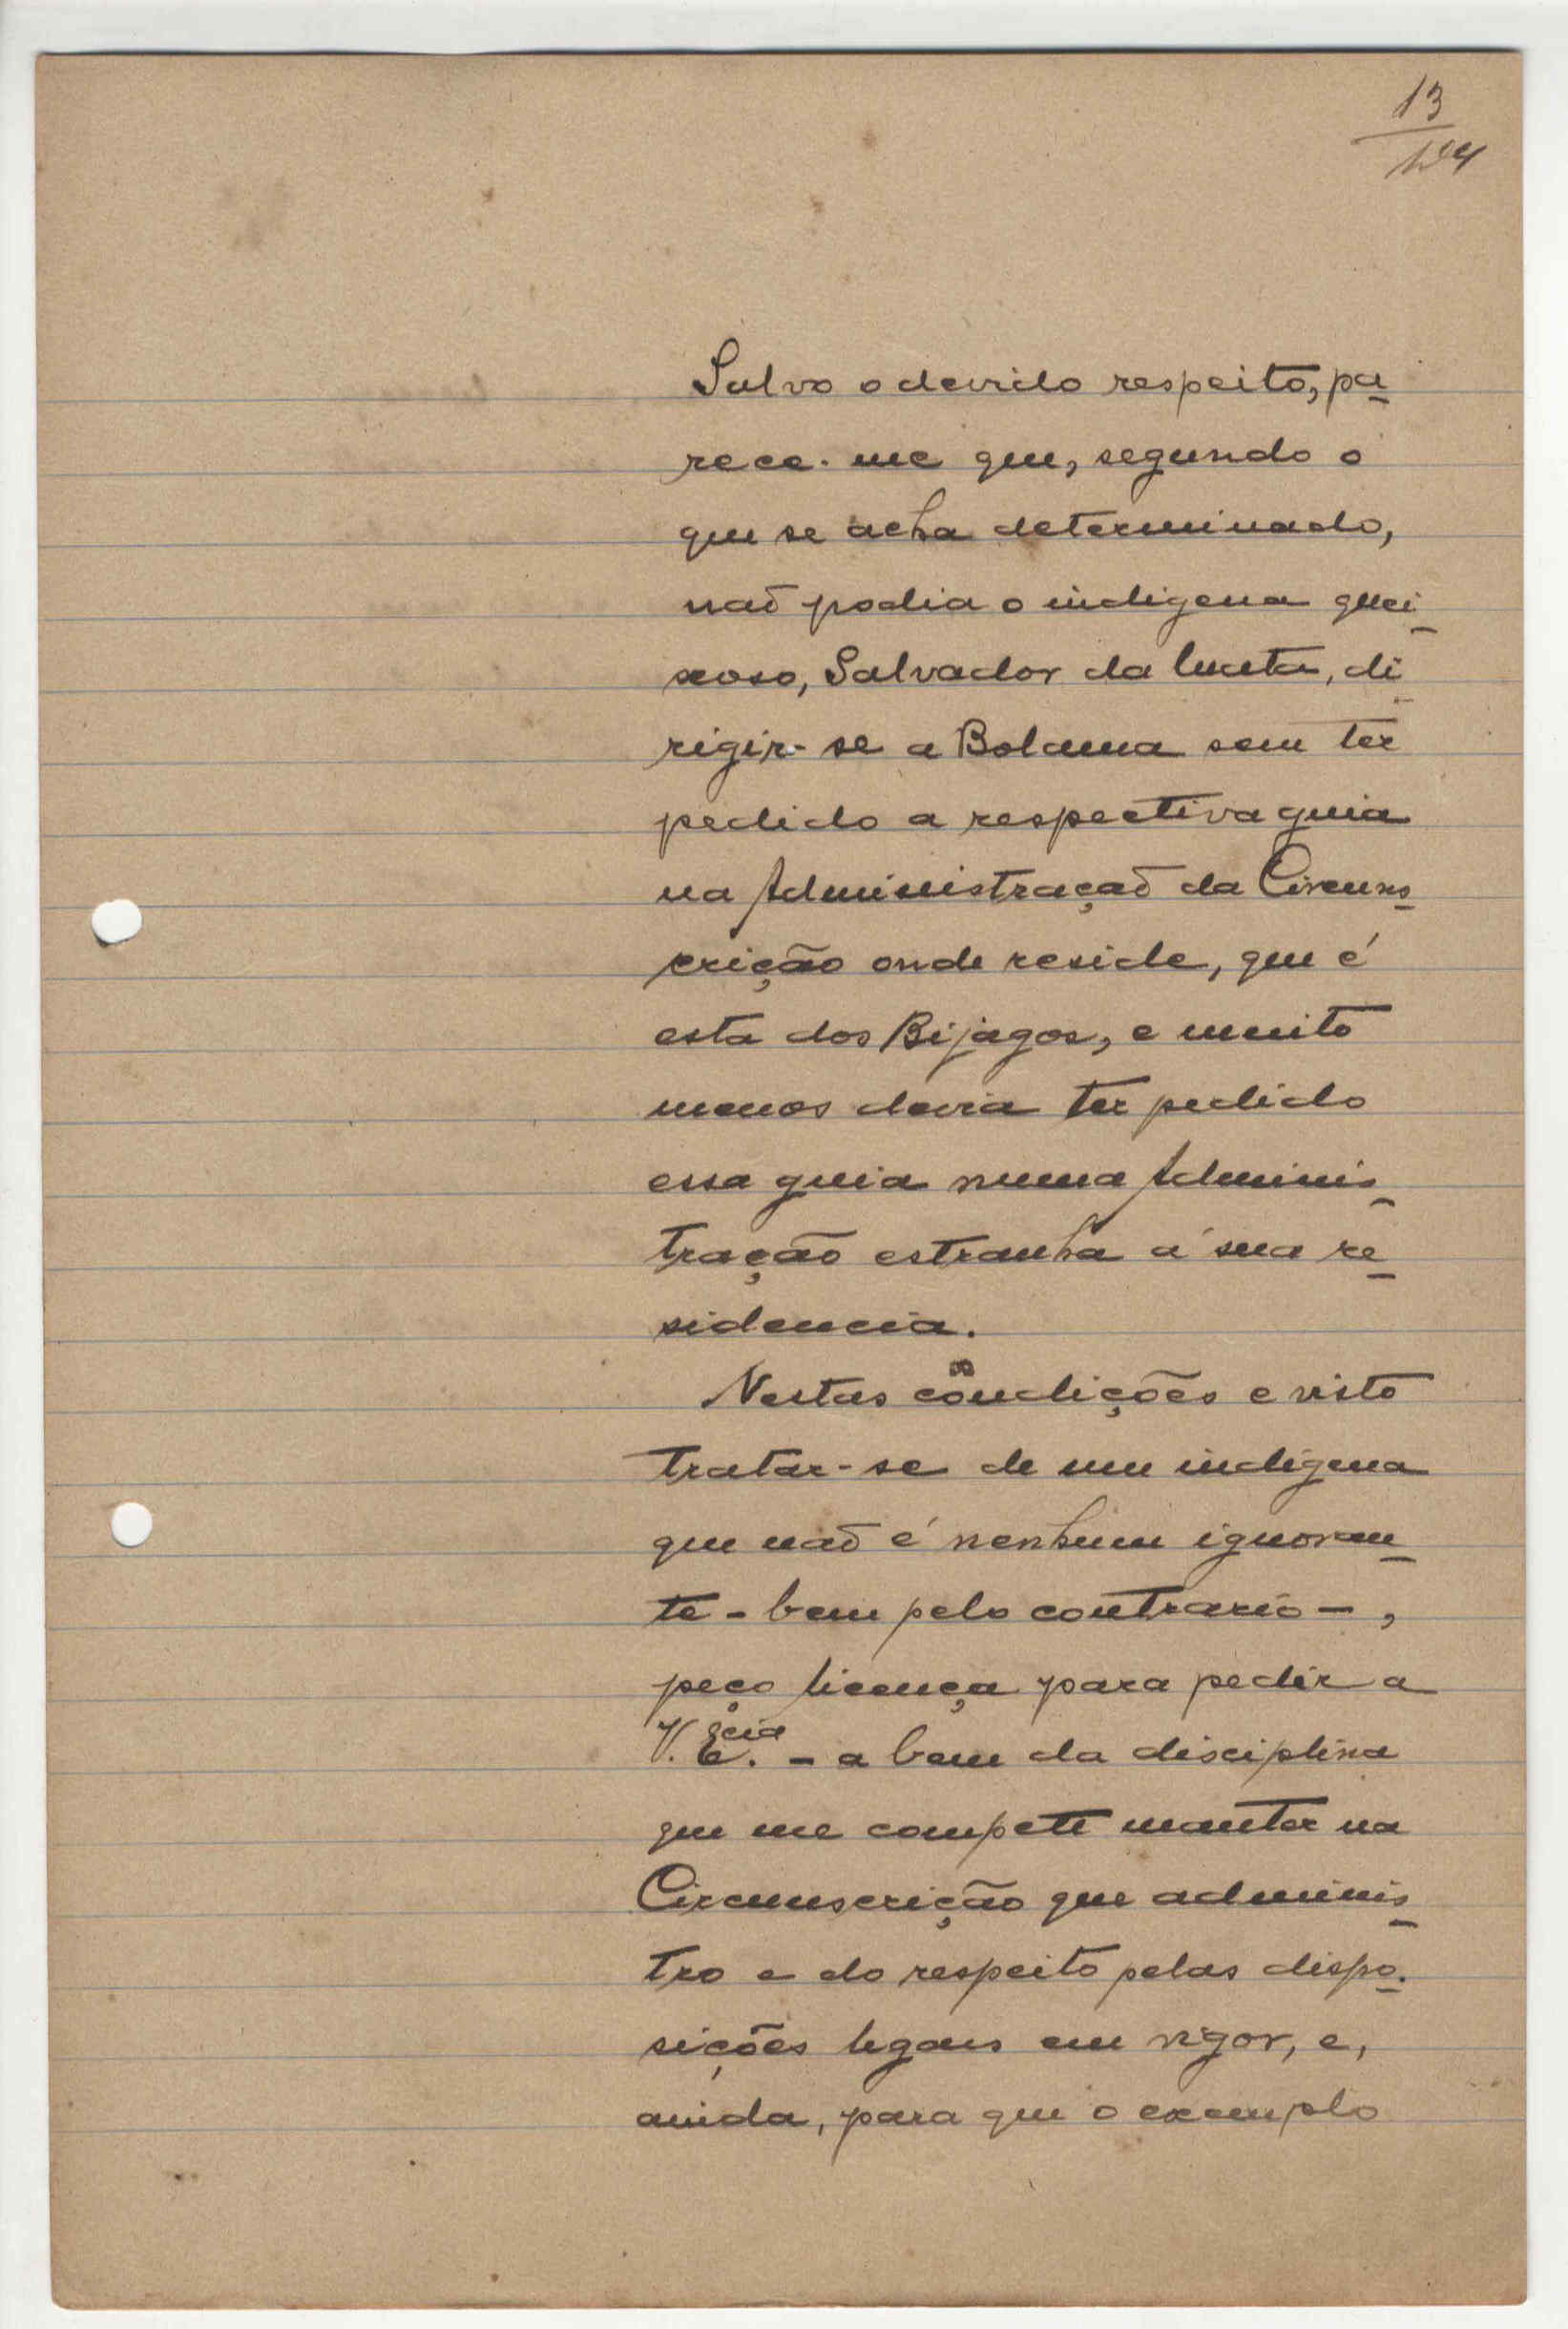 13
Salvo o devido respeito, pa-
rece-me que, segundo o
que se acha determinado,
naõ podia o indigena quei-
xoso, Salvador da Cunta, di-
rigir-se a Bolama sem ter
pedido a respectiva guia
na Administraçaõ da Circuns-
crição onde reside, que é
esta dos Bijagos, e muito
menos devia ter pedido
essa guia numa Adminis-
tração estranha á sua re-
sidencia.
Nestas condições e visto
tratar-se de um indigena
que naõ é nenhum ignoran-
te - bem pelo contrario -,
peço licença para pedir a
V. Ecia. - a bem da disciplina
que me compete manter na
Circunscrição que adminis-
tro e do respeito pelas dispo-
sições legaes em vigor, e,
ainda, para que o exemplo